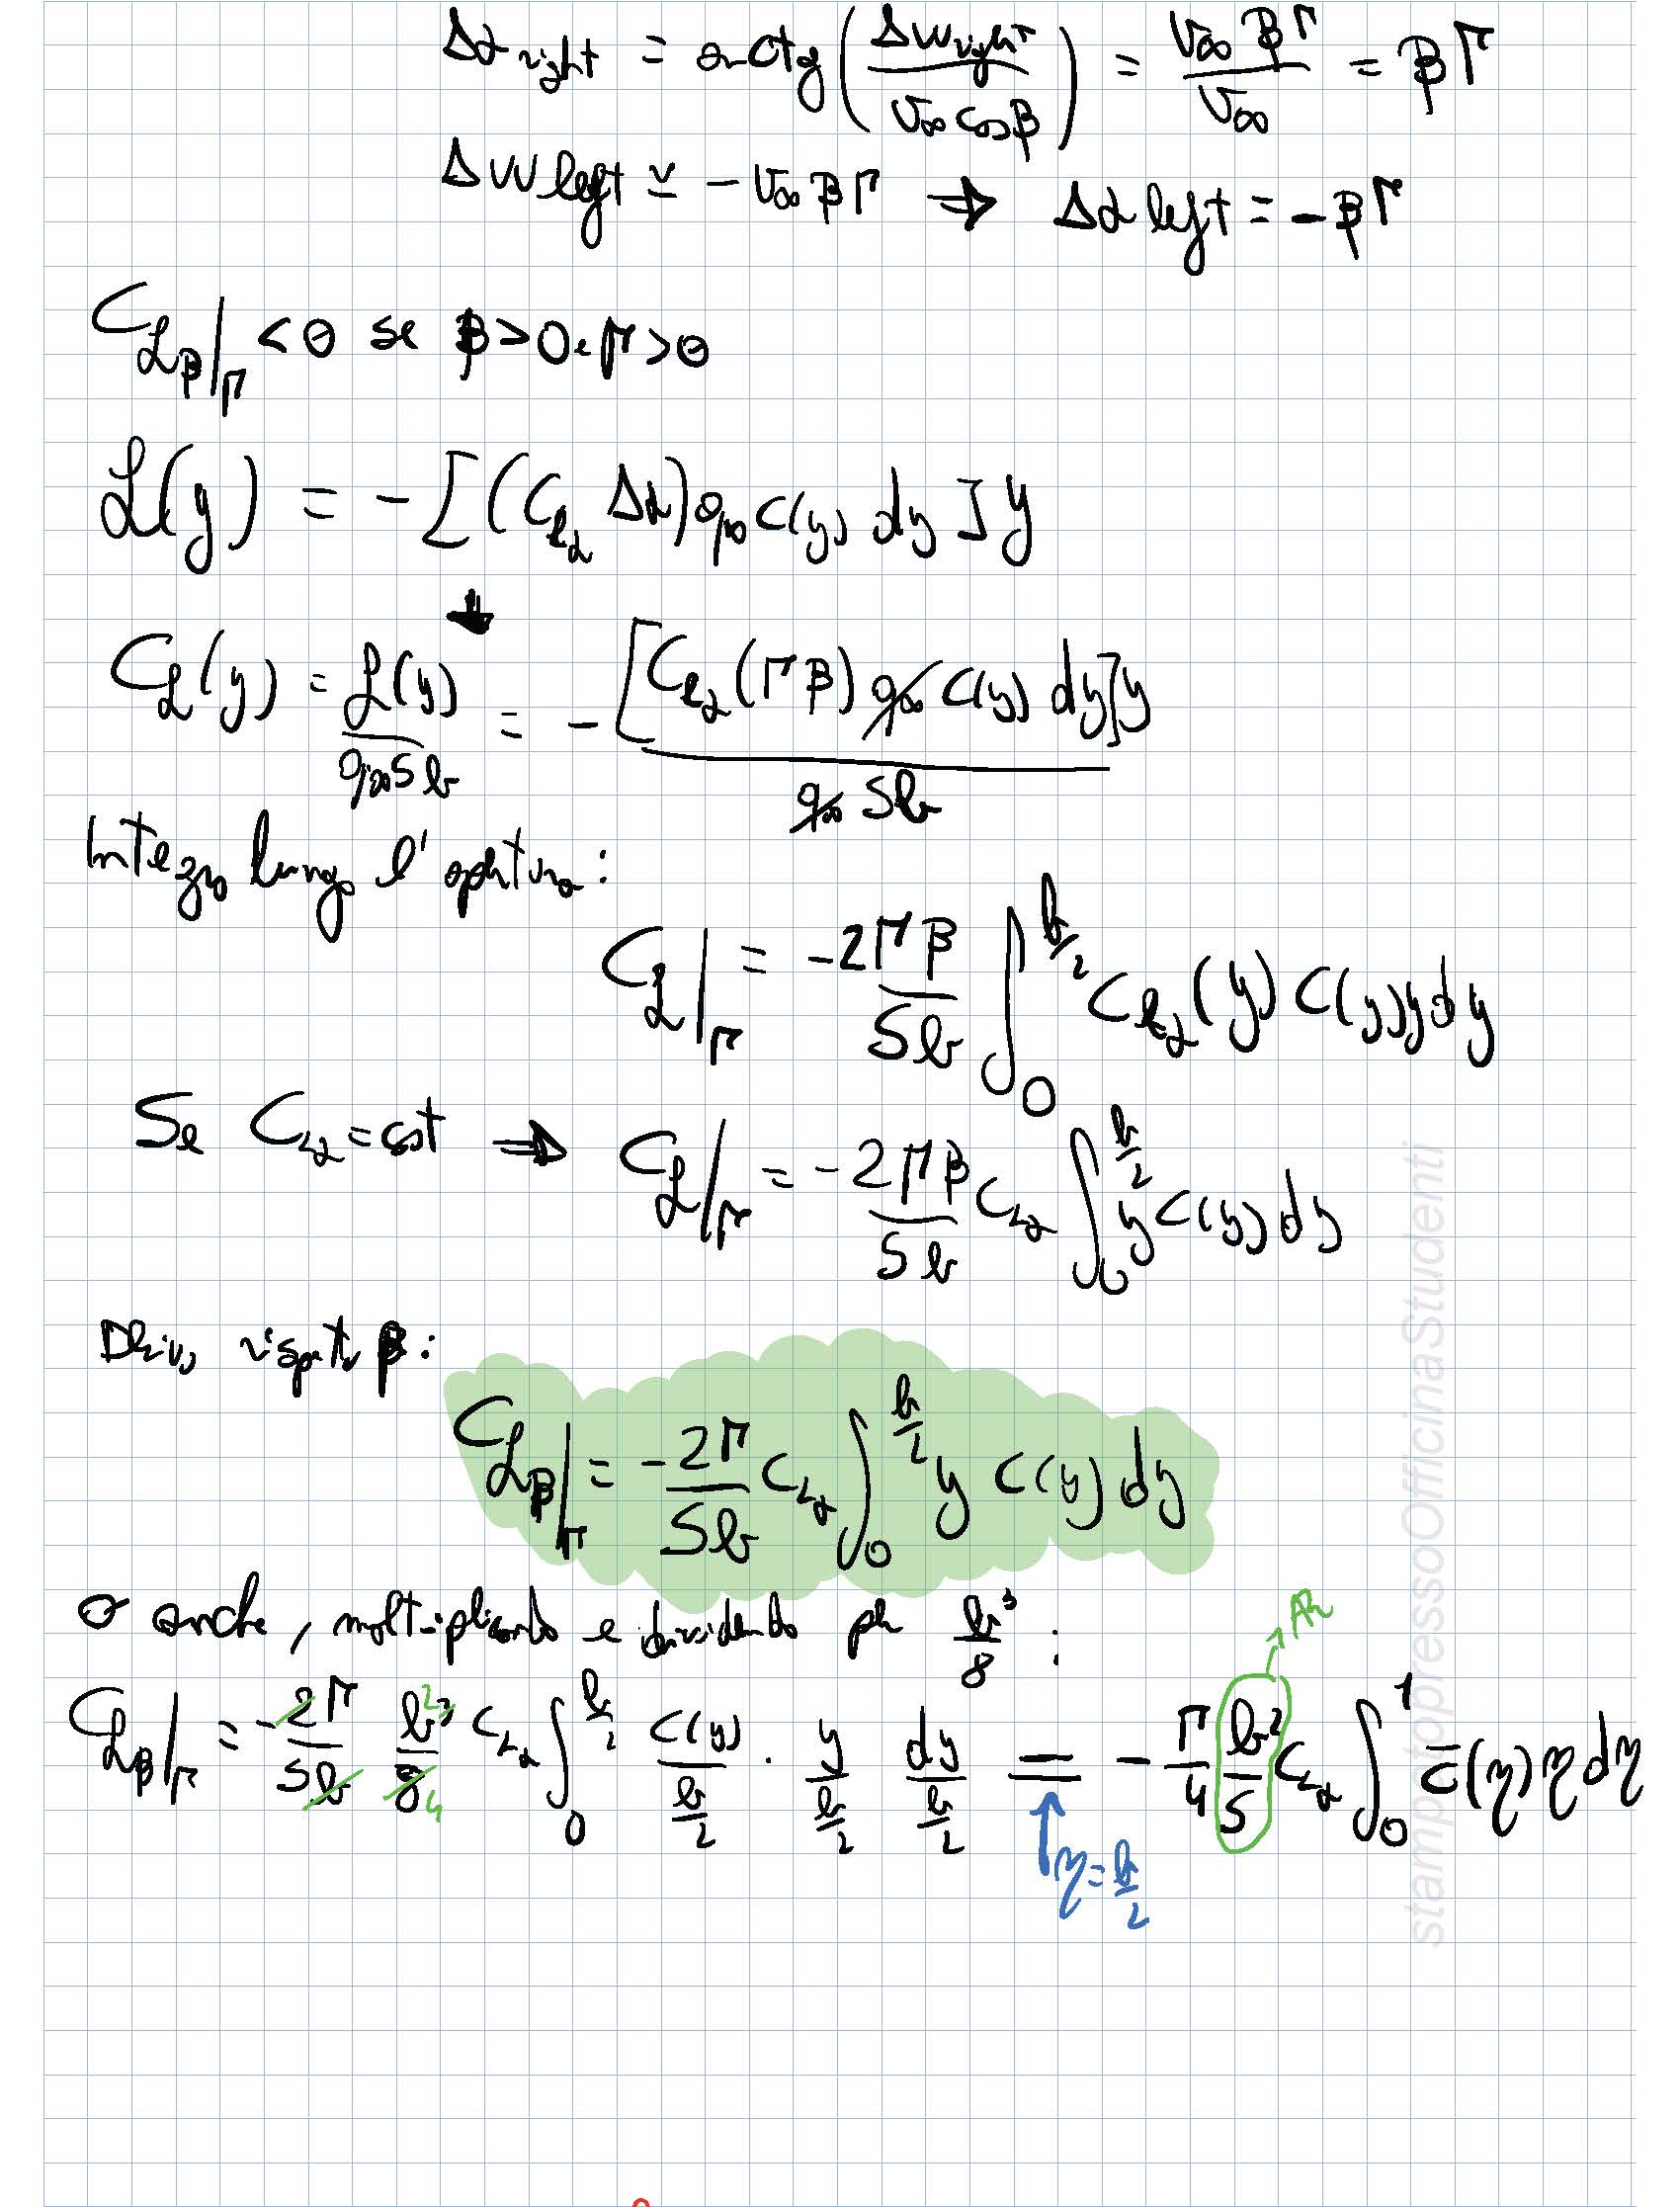 Δα right = arctg (Δw right / V∞ cosβ) = V∞ βΓ / V∞ = βΓ
Δw left ≃ - V∞ βΓ ⇒ Δα left = - βΓ
C𝓛β|Γ < 0 se β > 0 e Γ > 0
𝓛(y) = - [(Clα Δα) q∞ c(y) dy] y
C𝓛(y) = 𝓛(y) / q∞ S b = - [Clα (Γβ) q∞ c(y) dy] y / q∞ S b
Integro lungo l'apertura:
C𝓛|Γ = -2Γβ / Sb ∫₀^(b/2) Clα(y) c(y) y dy
Se CLα = cost ⇒ C𝓛|Γ = -2Γβ / Sb CLα ∫₀^(b/2) y c(y) dy
Derivo rispetto β:
C𝓛β|Γ = -2Γ / Sb CLα ∫₀^(b/2) y c(y) dy
O anche, moltiplicando e dividendo per b³/8 :
AR
C𝓛β|Γ = -2Γ / Sb b³/8 CLα ∫₀^(b/2) c(y)/(b/2) · y/(b/2) dy/(b/2) = - Γ/4 b²/S CLα ∫₀¹ c̄(η) η dη
2 4
η = b/2
stampatopressoOfficinaStudenti